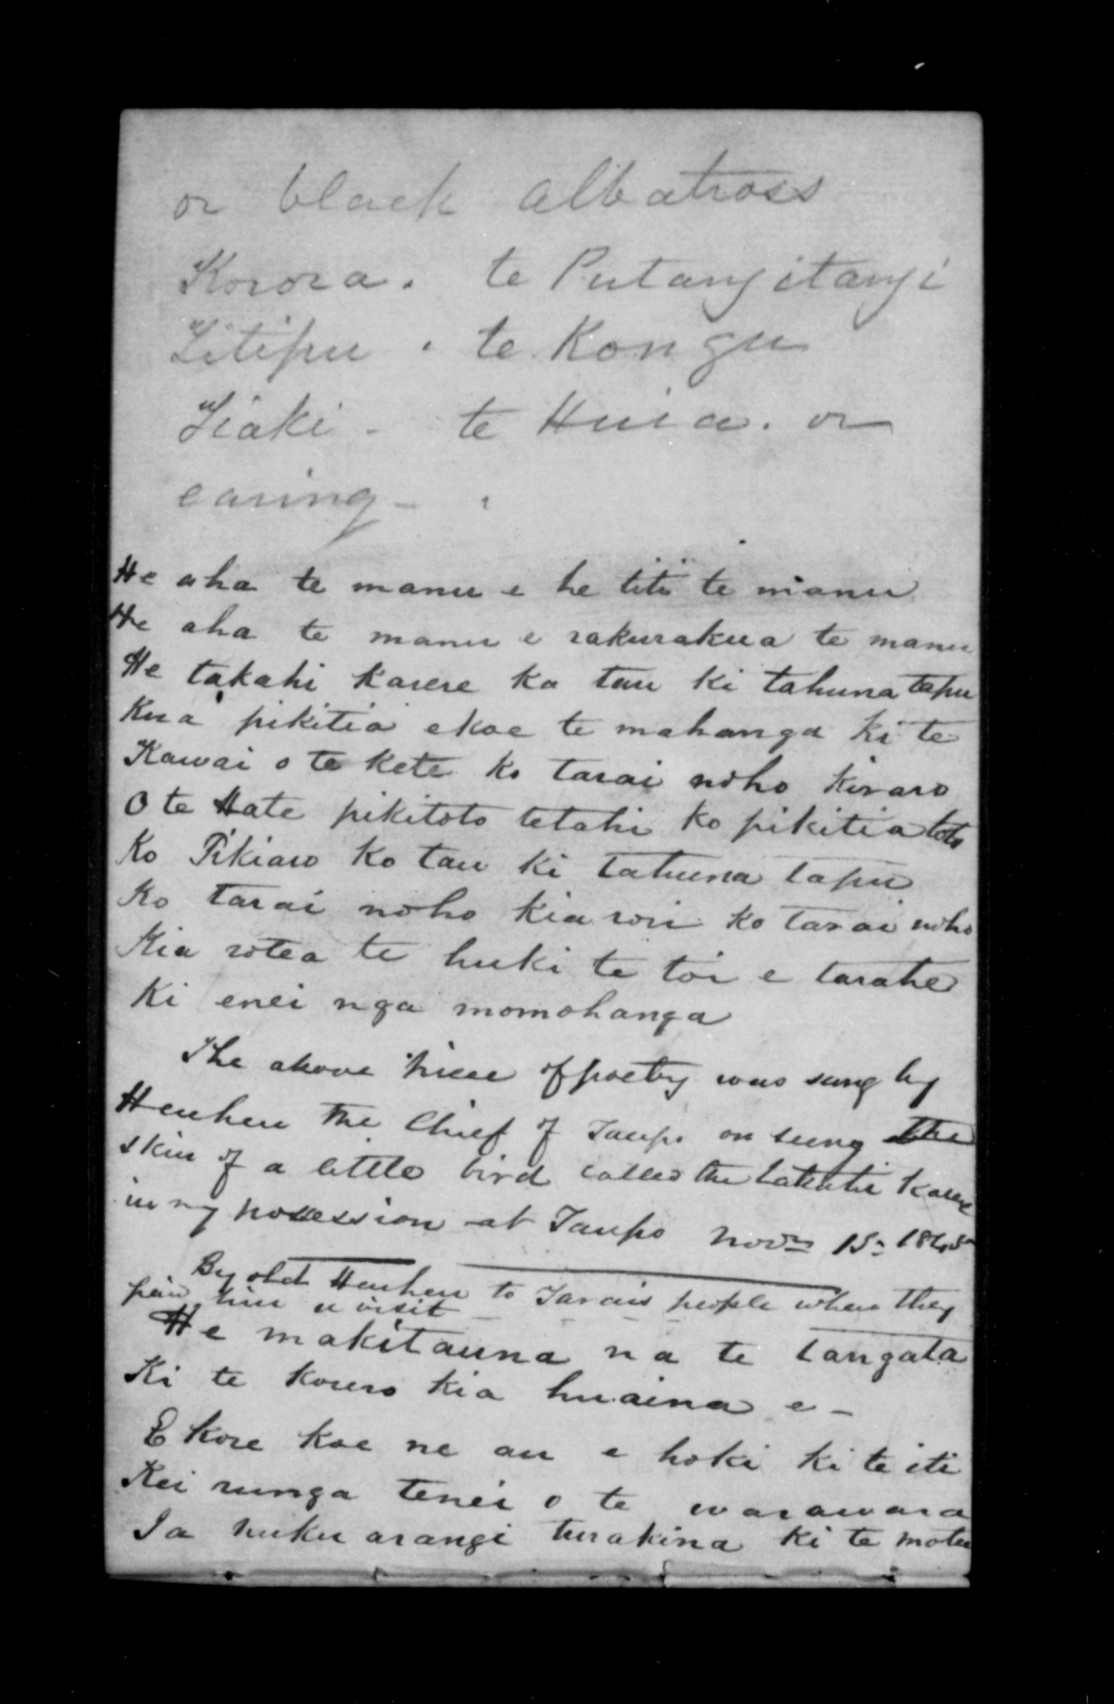 or black albatross
Korora. te Putangitangi
Titipu. te Kongu
Tiaki - te Huia. or
earing -
He aha te manu e he titi te manu
He aha te manu e rakurakua te manu
He takahi karere ka tau ki tahuna tapu
Kua pikitia ekoe te mahanga ki te
Kawai o te kete ko tarai noho kiraro
O te Hate pikitoto tetahi ko pikitia toto
Ko Pikiaro ko tau ki tahuna tapu
Ko tarai noho kia rori ko tarai noho
Kia rotea te huki te toi e tarahe
Ki enei nga momohanga
The above piece of poetry was sung by
Heuheu the Chief of Taupo on seeing the
skin of a little bird called the takahi Karere
in my possession at Taupo Novr 15 1845
By old Heuheu to Tarais people when they
paid him a visit
He makitauna na te tangata
Ki te korero kia huaina e -
E kore koe ne au e hoki ki te iti
Kei runga tenei o te warawara
Ia nuku arangi turakina ki te motu